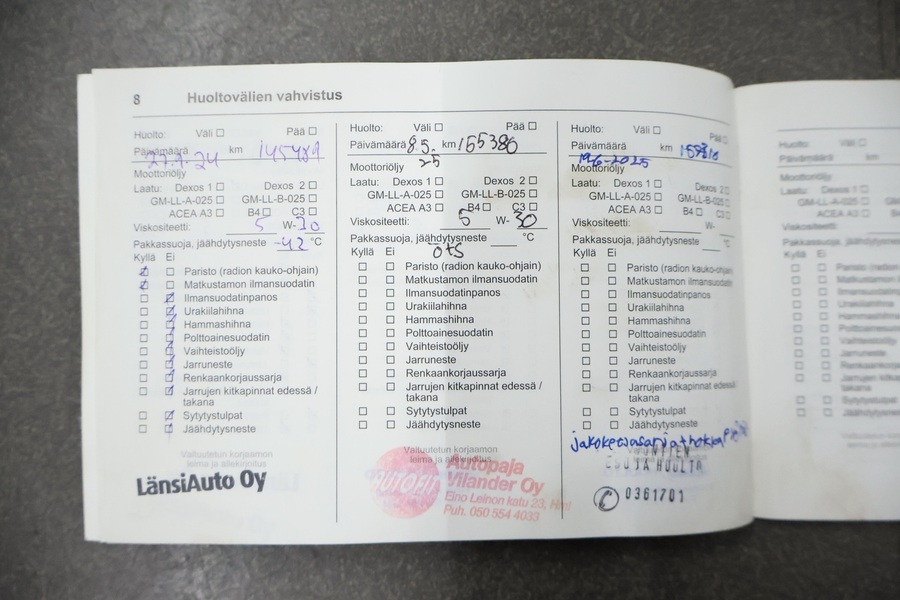 8 Huoltovälien vahvistus
Huolto: Väli Pää
Päivämäärä km
27.9.24 145489
Moottoriöljy
Laatu: Dexos 1 Dexos 2
GM-LL-A-025 GM-LL-B-025
ACEA A3 B4 C3
Viskositeetti: 5 W-30
Pakkassuoja, jäähdytysneste -42 °C
Kyllä Ei
Paristo (radion kauko-ohjain)
Matkustamon ilmansuodatin
Ilmansuodatinpanos
Urakiilahihna
Hammashihna
Polttoainesuodatin
Vaihteistoöljy
Jarruneste
Renkaankorjaussarja
Jarrujen kitkapinnat edessä /
takana
Sytytystulpat
Jäähdytysneste
Valtuutetun korjaamon
leima ja allekirjoitus
LänsiAuto Oy
Huolto: Väli Pää
Päivämäärä 8.5. km 155380
25
Moottoriöljy
Laatu: Dexos 1 Dexos 2
GM-LL-A-025 GM-LL-B-025
ACEA A3 B4 C3
Viskositeetti: 5 W-30
Pakkassuoja, jäähdytysneste °C
ots
Kyllä Ei
Paristo (radion kauko-ohjain)
Matkustamon ilmansuodatin
Ilmansuodatinpanos
Urakiilahihna
Hammashihna
Polttoainesuodatin
Vaihteistoöljy
Jarruneste
Renkaankorjaussarja
Jarrujen kitkapinnat edessä /
takana
Sytytystulpat
Jäähdytysneste
Valtuutetun korjaamon
leima ja allekirjoitus
AUTOFIT
Autopaja
Vilander Oy
Eino Leinon katu 23, Hml
Puh. 050 554 4033
Huolto: Väli Pää
Päivämäärä km
19.6-2025
Moottoriöljy
Laatu: Dexos 1 Dexos 2
GM-LL-A-025 GM-LL-B-025
ACEA A3 B4 C3
Viskositeetti: W-
Pakkassuoja, jäähdytysneste °C
Kyllä Ei
Paristo (radion kauko-ohjain)
Matkustamon ilmansuodatin
Ilmansuodatinpanos
Urakiilahihna
Hammashihna
Polttoainesuodatin
Vaihteistoöljy
Jarruneste
Renkaankorjaussarja
Jarrujen kitkapinnat edessä /
takana
Sytytystulpat
Jäähdytysneste
Valtuutetun korjaamon
HUOLTO
0361701
Huolto: Väli
Päivämäärä km
Moottoriöljy
Laatu: Dexos 1
GM-LL-A-025
ACEA A3
Viskositeetti:
Pakkassuoja, jäähdytysneste
Kyllä Ei